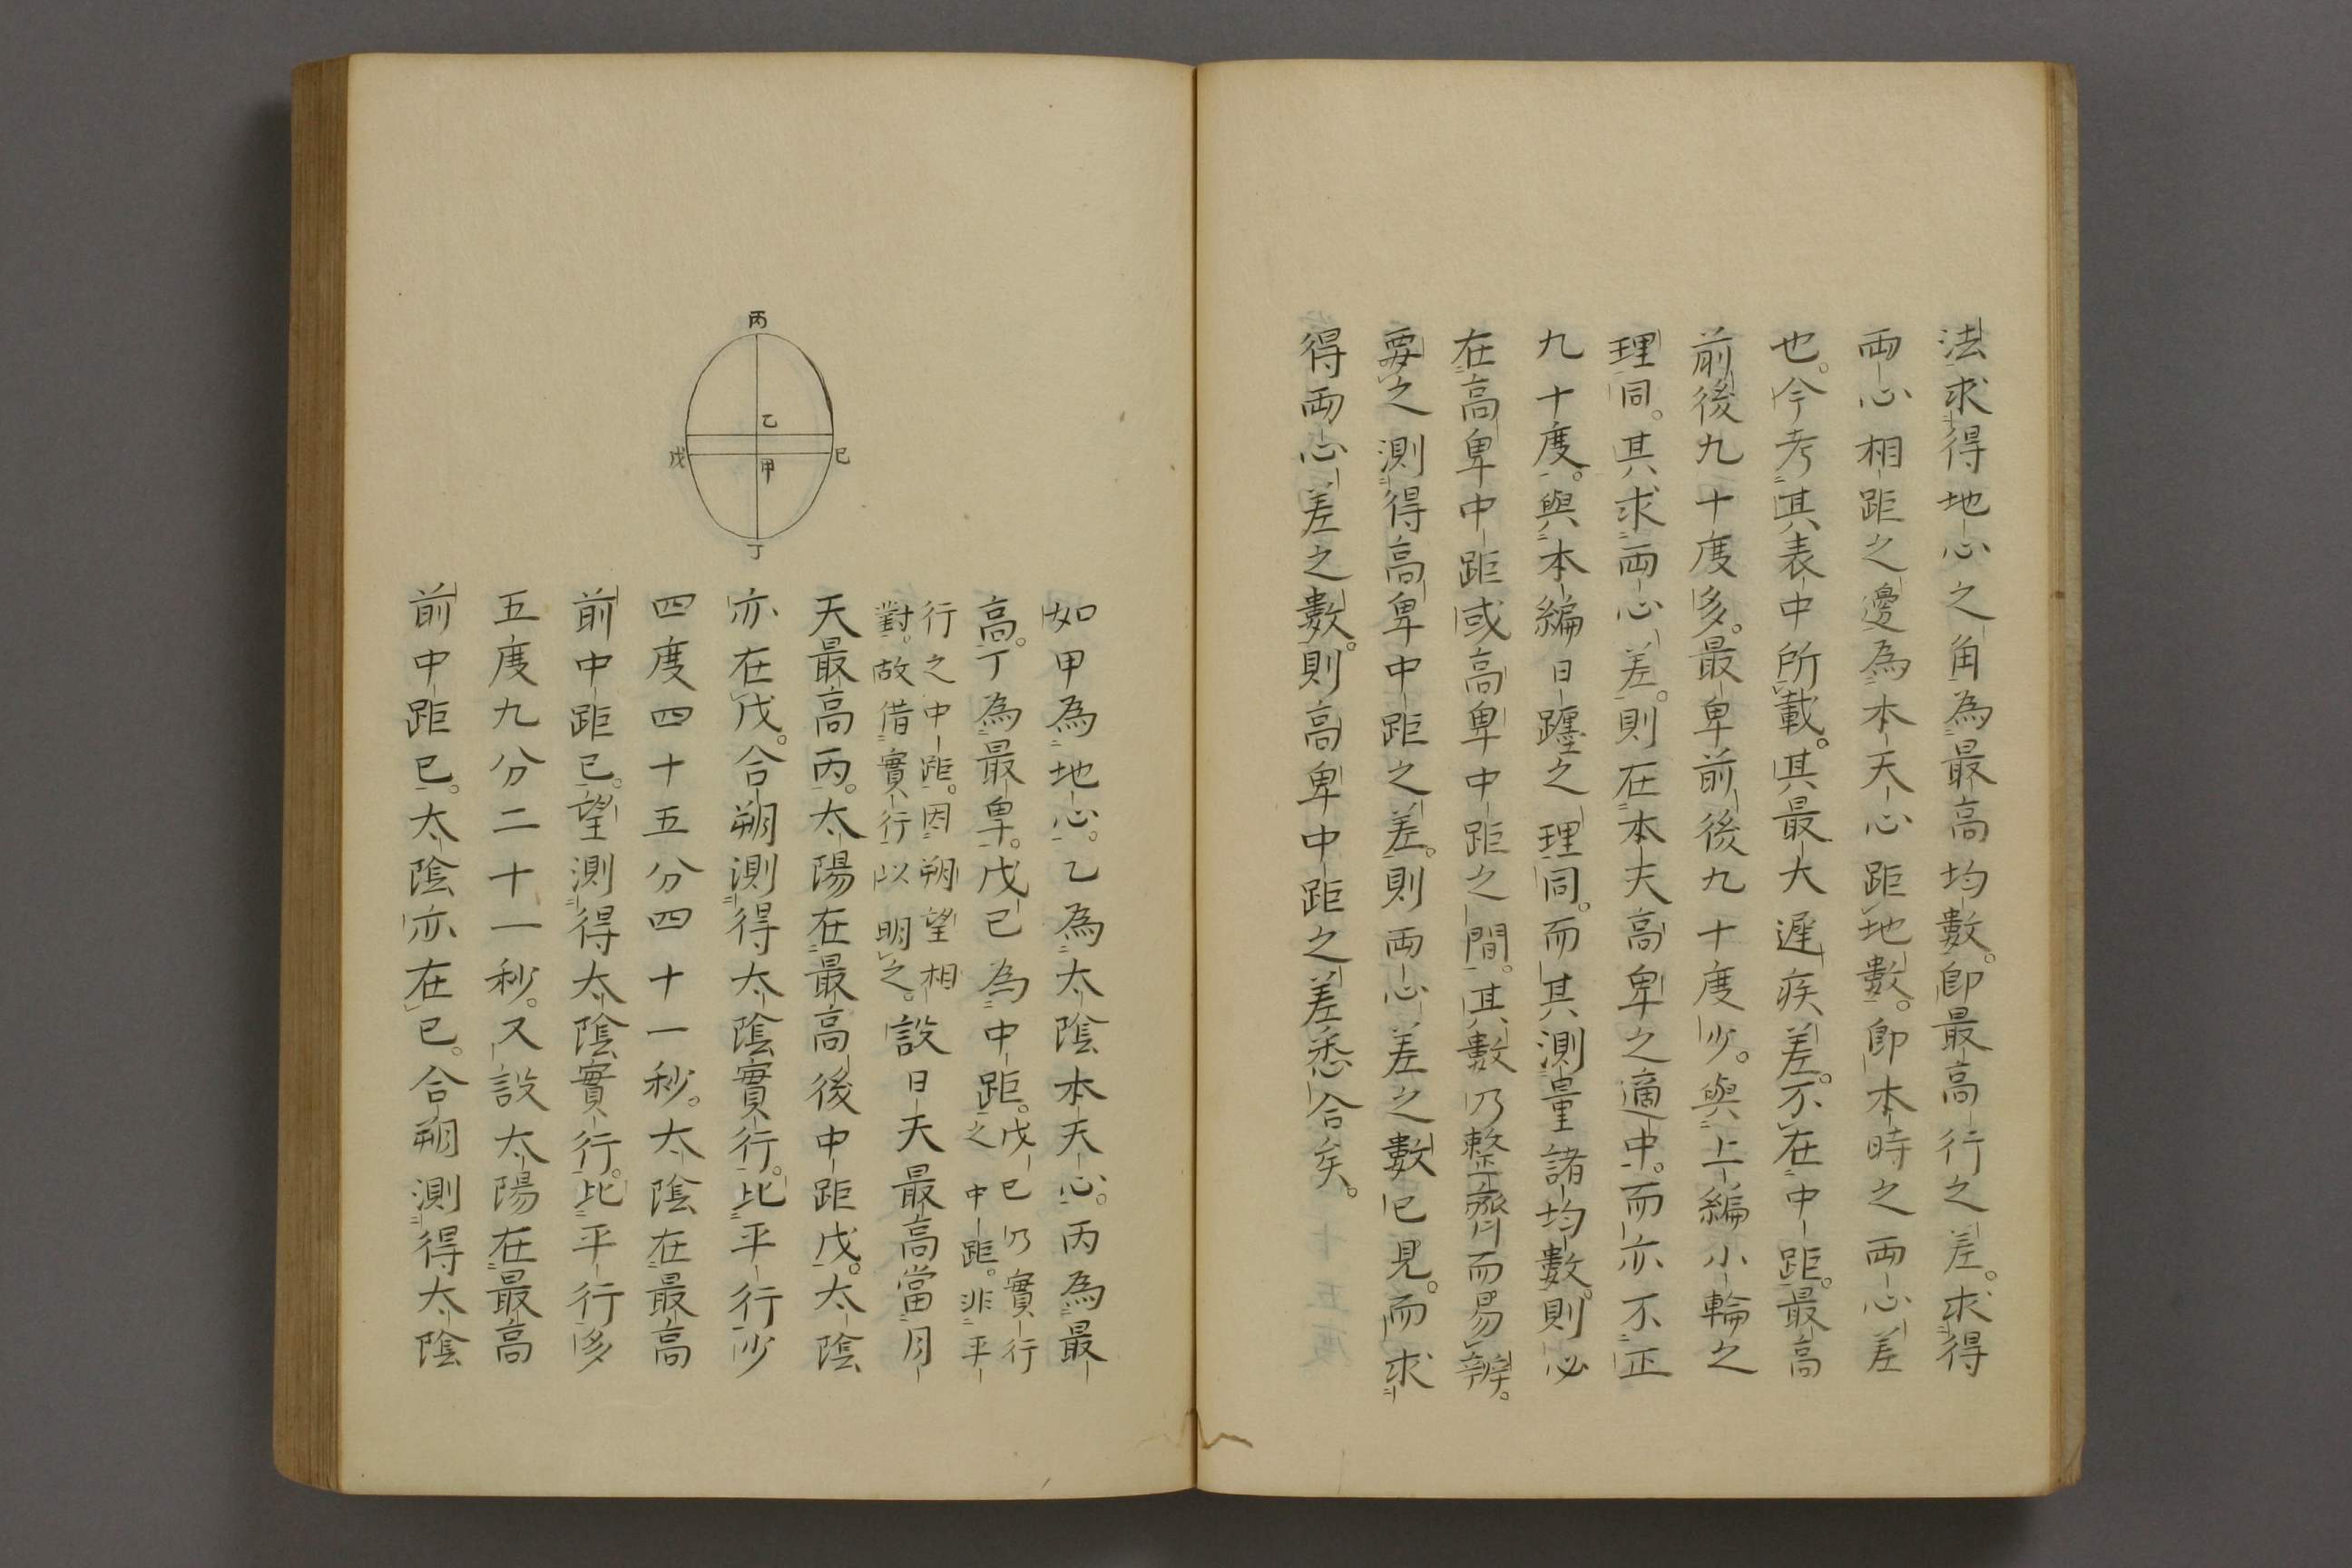 法求得地心之角為最高均數。卽最高行之差。求得
兩心相距之邊為本天心距地數。卽本時之兩心差
也。今考其表中所載。其最大遲疾差。不在中距。最高
前後九十度多。最卑前後九十度少。與上編小輪之
理同。其求兩心差。則在本天高卑之適中。而亦不正
九十度。與本編日躔之理同。而其測量諸均數。則必
在高卑中距或高卑中距之間。其數乃整齊而易辨。
要之測得高卑中距之差。則兩心差之數已見。而求
得兩心差之數。則高卑中距之差悉合矣。
丙
乙
戊
甲
巳
丁
如甲為地心。乙為太陰本天心。丙為最
高。丁為最卑。戊巳為中距。戊巳乃實行
之中距。非平
行之中距。因朔望相
對。故借實行以明之。設日天最高當月
天最高丙。太陽在最高後中距戊。太陰
亦在戊。合朔測得太陰實行。比平行少
四度四十五分四十一秒。太陰在最高
前中距巳。望測得太陰實行。比平行多
五度九分二十一秒。又設太陽在最高
前中距巳。太陰亦在巳。合朔測得太陰